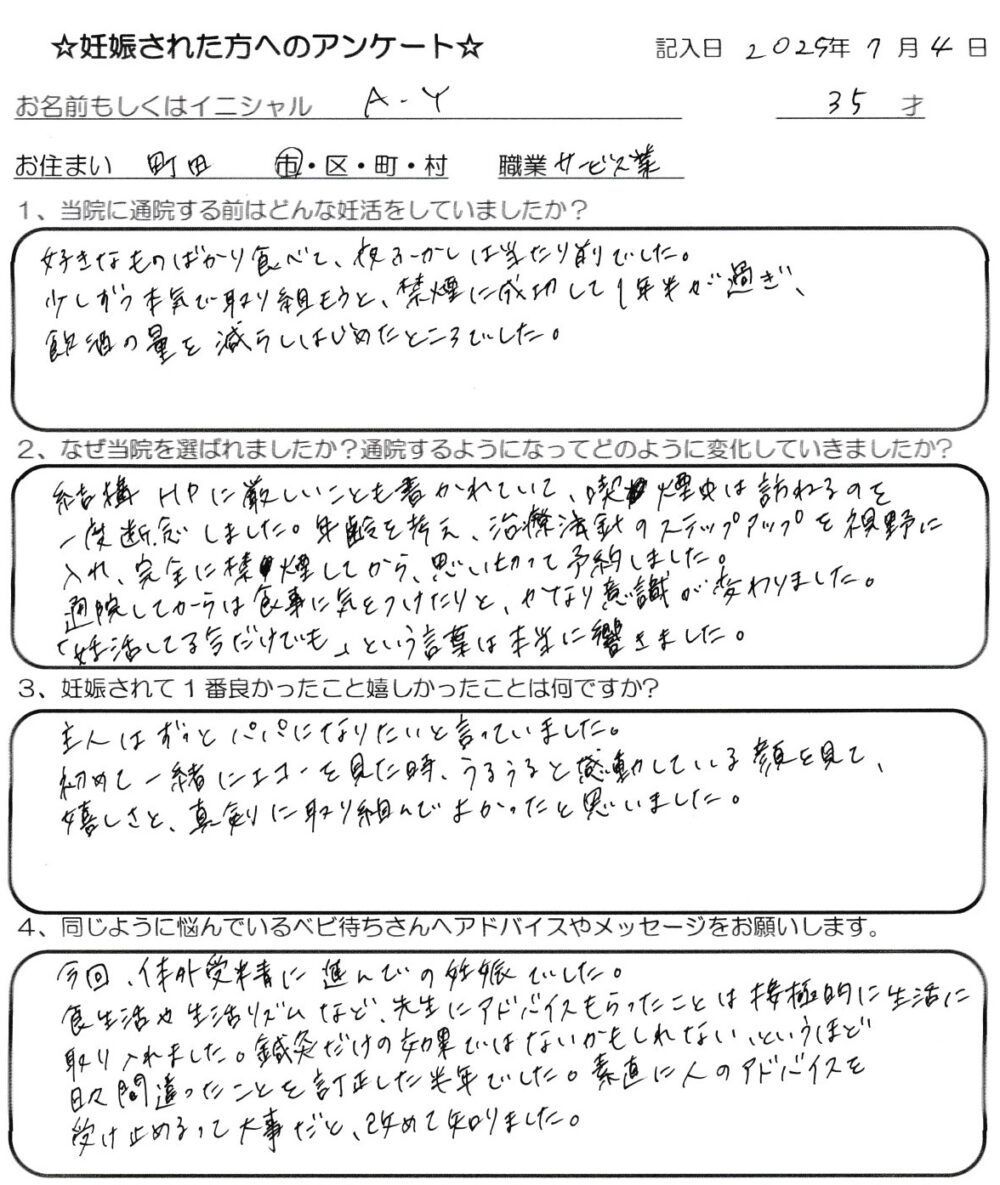 ☆妊娠された方へのアンケート☆ 記入日 2025年 7月 4日
お名前もしくはイニシャル A-Y 35 才
お住まい 町田 市・区・町・村 職業 サービス業
1、当院に通院する前はどんな妊活をしていましたか？
好きなものばかり食べて、夜ふかしは当たり前でした。
少しずつ本気で取り組もうと、禁煙に成功して1年半が過ぎ、
飲酒の量を減らしはじめたところでした。
2、なぜ当院を選ばれましたか？通院するようになってどのように変化していきましたか?
結構HPに厳しいことも書かれていて、喫煙中は訪ねるのを
一度断念しました。年齢を考え、治療方針のステップアップを視野に
入れ、完全に禁煙してから、思い切って予約しました。
通院してからは食事に気をつけたりと、かなり意識が変わりました。
「妊活してる今だけでも」という言葉は本当に響きました。
3、妊娠されて1番良かったこと嬉しかったことは何ですか?
主人はずっとパパになりたいと言っていました。
初めて一緒にエコーを見た時、うるうると感動している顔を見て、
嬉しさと、真剣に取り組んでよかったと思いました。
4、同じように悩んでいるベビ待ちさんへアドバイスやメッセージをお願いします。
今回、体外受精に進んでの妊娠でした。
食生活や生活リズムなど、先生にアドバイスもらったことは積極的に生活に
取り入れました。鍼灸だけの効果ではないかもしれない、というほど
日々間違ったことを訂正した半年でした。素直に人のアドバイスを
受け止めるって大事だと、改めて知りました。